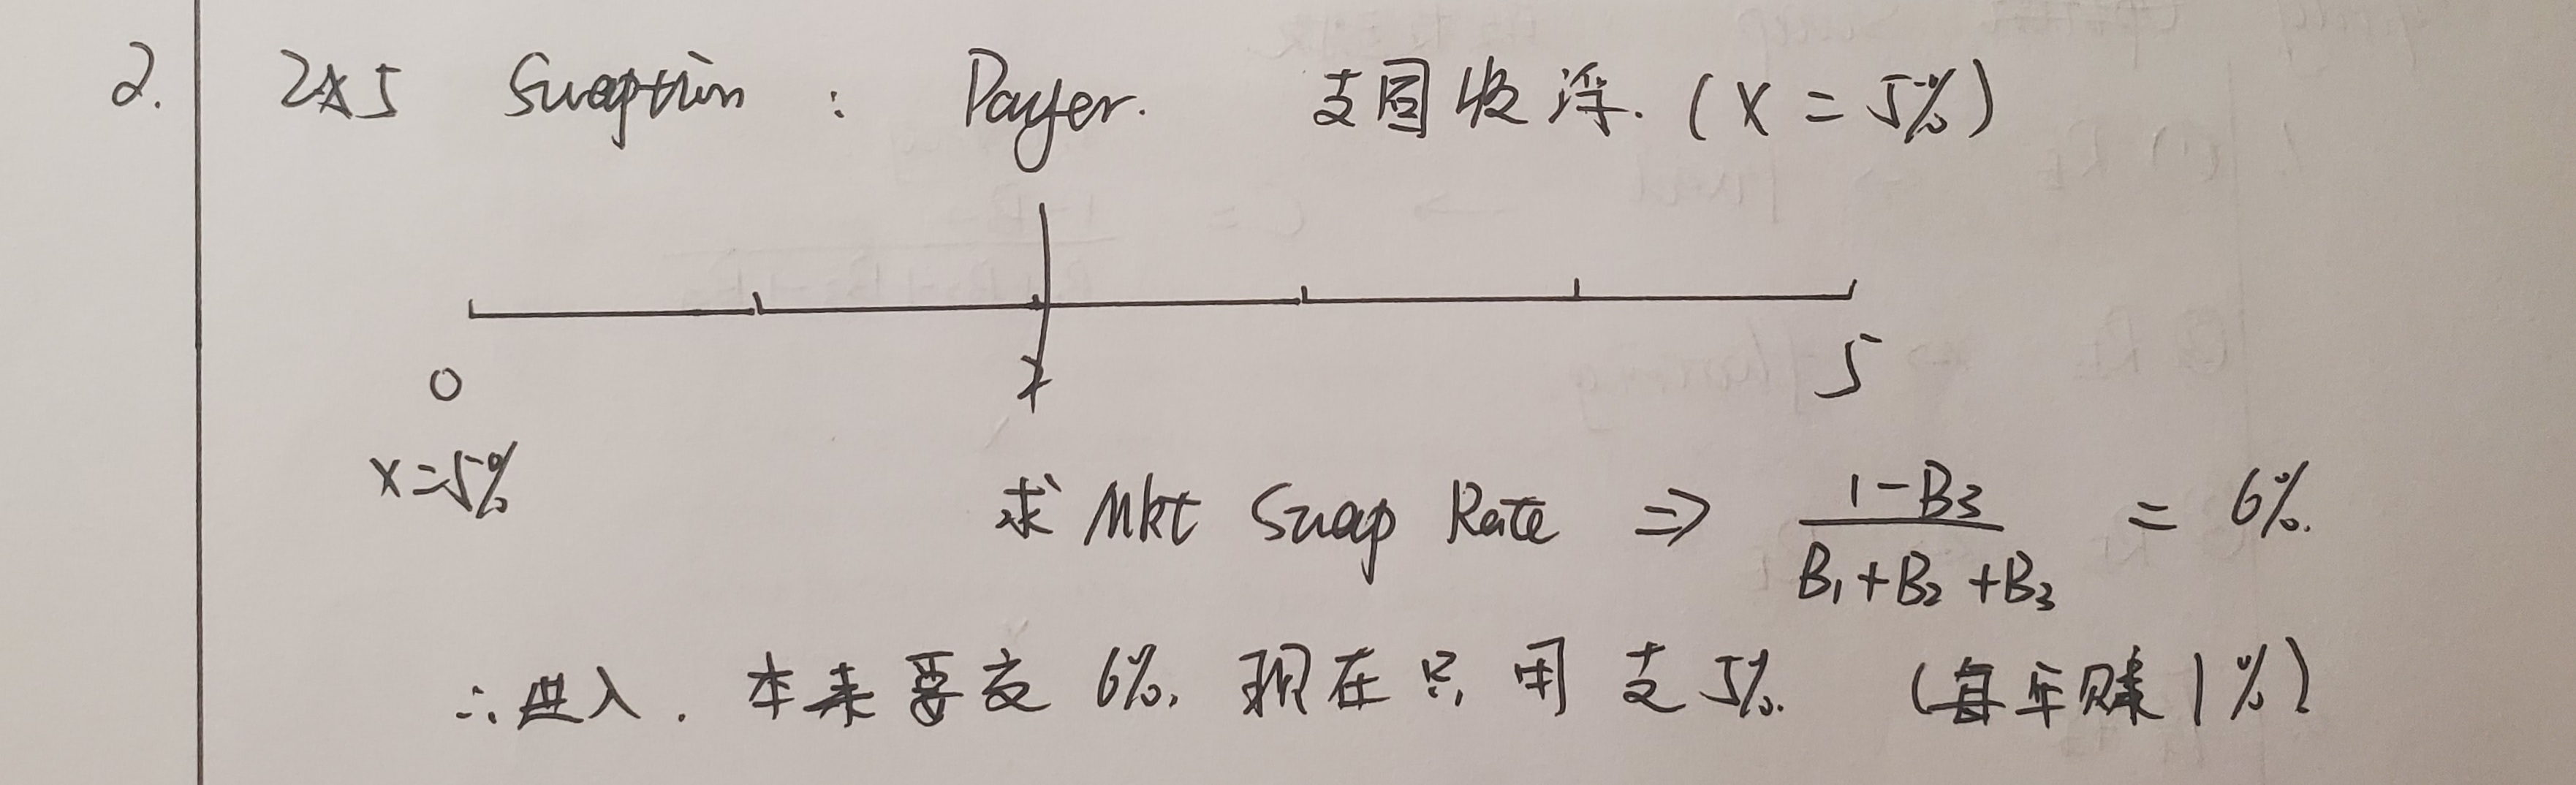 2. 2x5 Swaption : Payer. 支固收浮. (X = 5%)
0 2 5
X=5%
求 Mkt Swap Rate ⇒ (1-B₃)/(B₁+B₂+B₃) = 6%.
∴进入. 本来要支 6%, 现在只用支 5%. (每年赚1%)